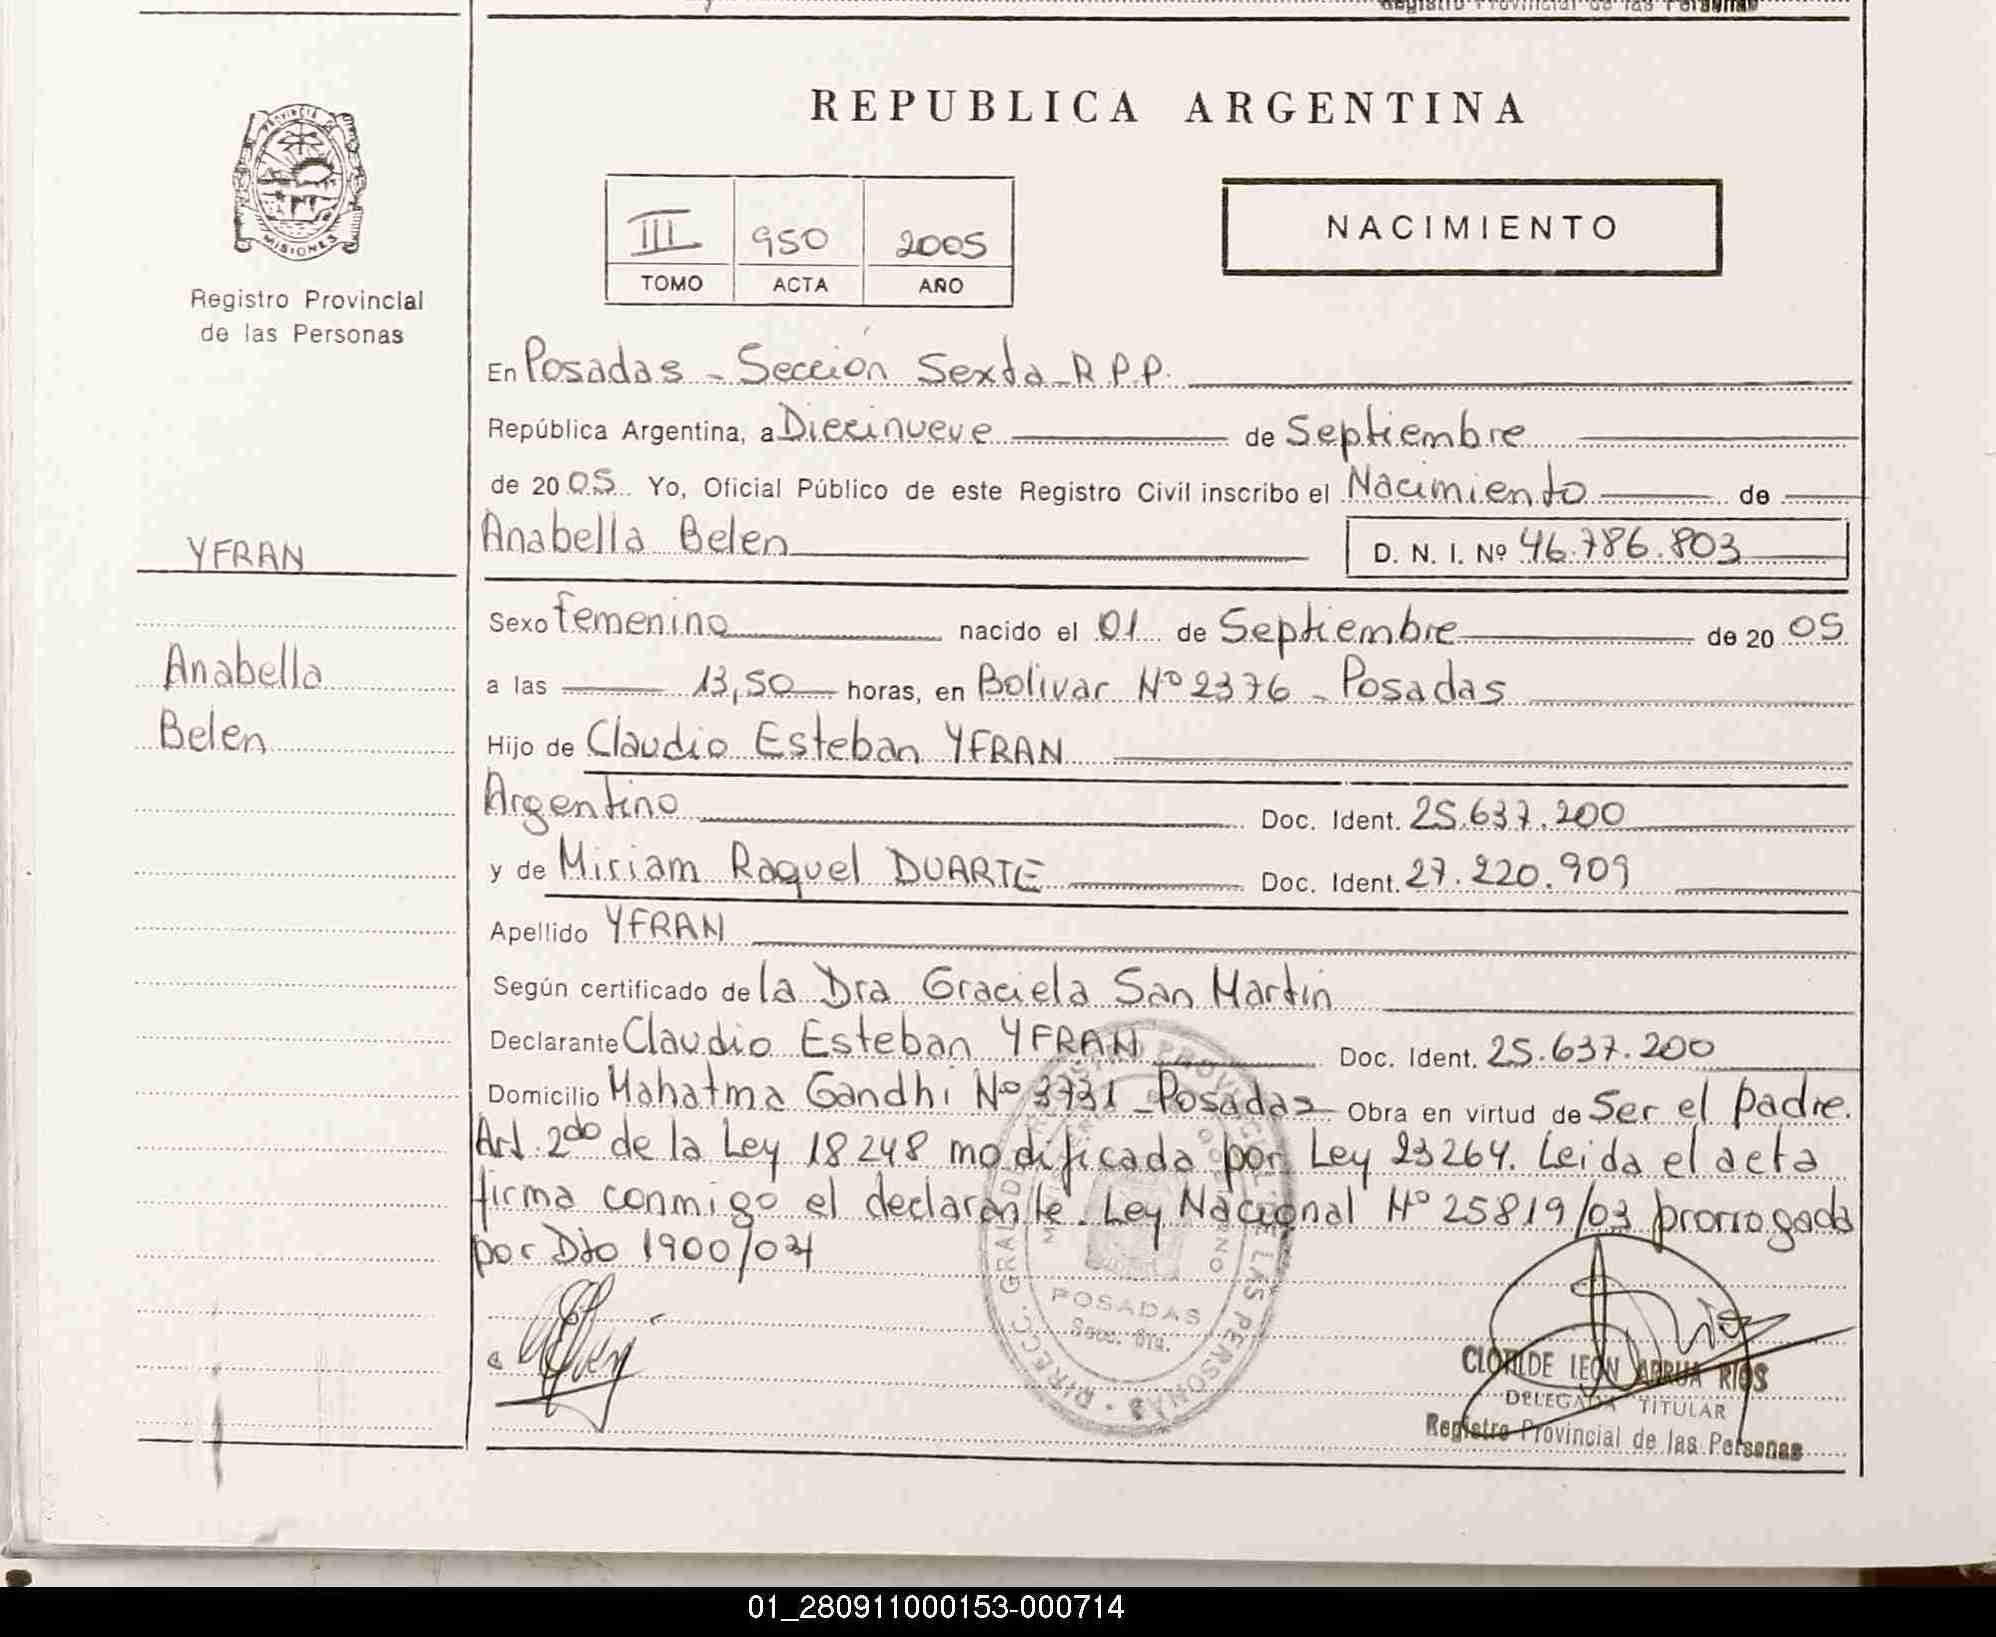 Registro Provincial de las Personas
REPUBLICA ARGENTINA
PROVINCIA DE
MISIONES
Registro Provincial
de las Personas
III 950 2005
TOMO ACTA AÑO
NACIMIENTO
En Posadas - Sección Sexta R.P.P.
República Argentina, a Diecinueve de Septiembre
de 2005 Yo, Oficial Público de este Registro Civil inscribo el Nacimiento de
YFRAN
Anabella Belen D. N. I. Nº 46.786.803
Sexo femenino nacido el 01 de Septiembre de 2005
Anabella
a las 13,50 horas, en Bolivar Nº 2376 - Posadas
Belen
Hijo de Claudio Esteban YFRAN
Argentino Doc. Ident. 25.637.200
y de Miriam Raquel DUARTE Doc. Ident. 27.220.909
Apellido YFRAN
Según certificado de la Dra Graciela San Martin
Declarante Claudio Esteban YFRAN Doc. Ident. 25.637.200
Domicilio Mahatma Gandhi Nº 3731 - Posadas Obra en virtud de Ser el padre.
Art. 2do de la Ley 18248 modificada por Ley 23264. Leida el acta
firma conmigo el declarante. Ley Nacional Nº 25819/03 prorrogada
por Dto 1900/04
POSADAS
Secc. 6ta.
CLOTILDE LEON ARRUA RIOS
DELEGADA TITULAR
Registro Provincial de las Personas
01_280911000153-000714